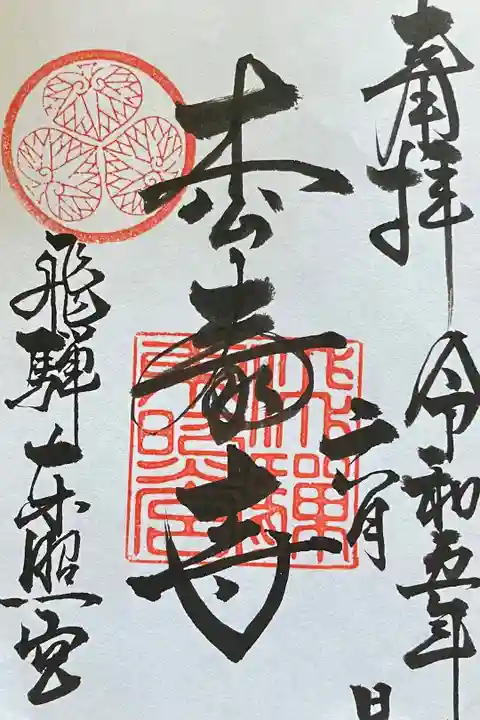 奉拝 令和五年
六月 日
松 寺
飛騨東照宮